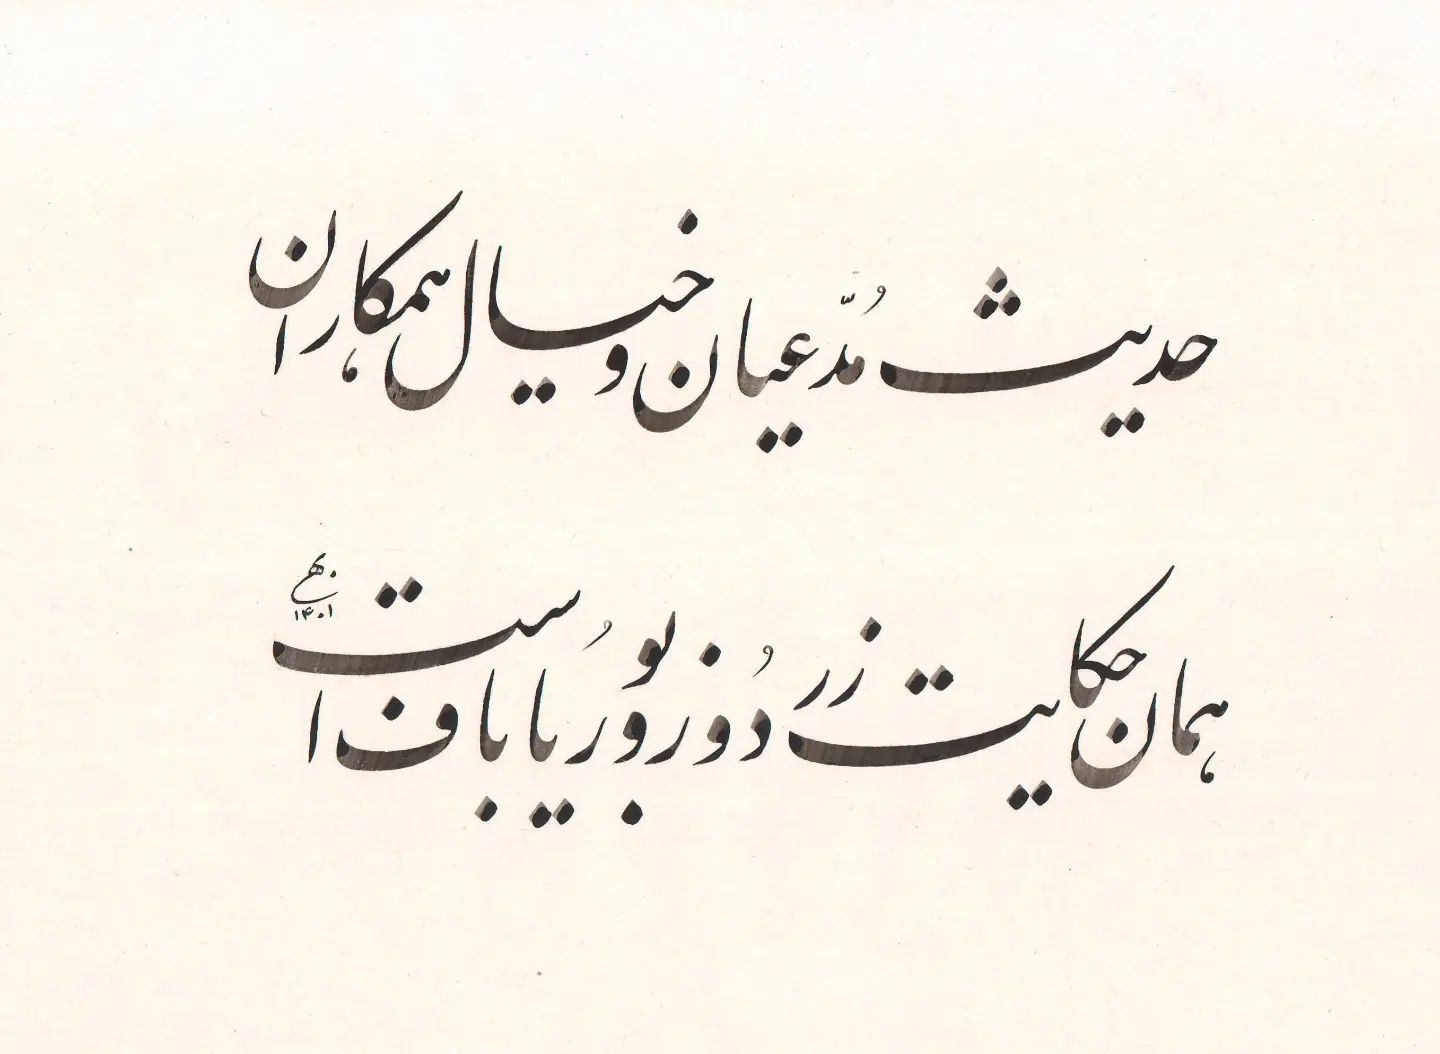 حدیث مُدّعیان و خیال همکاران
همان حکایت زردُوز و بوُریاباف است
۱۴۰۱